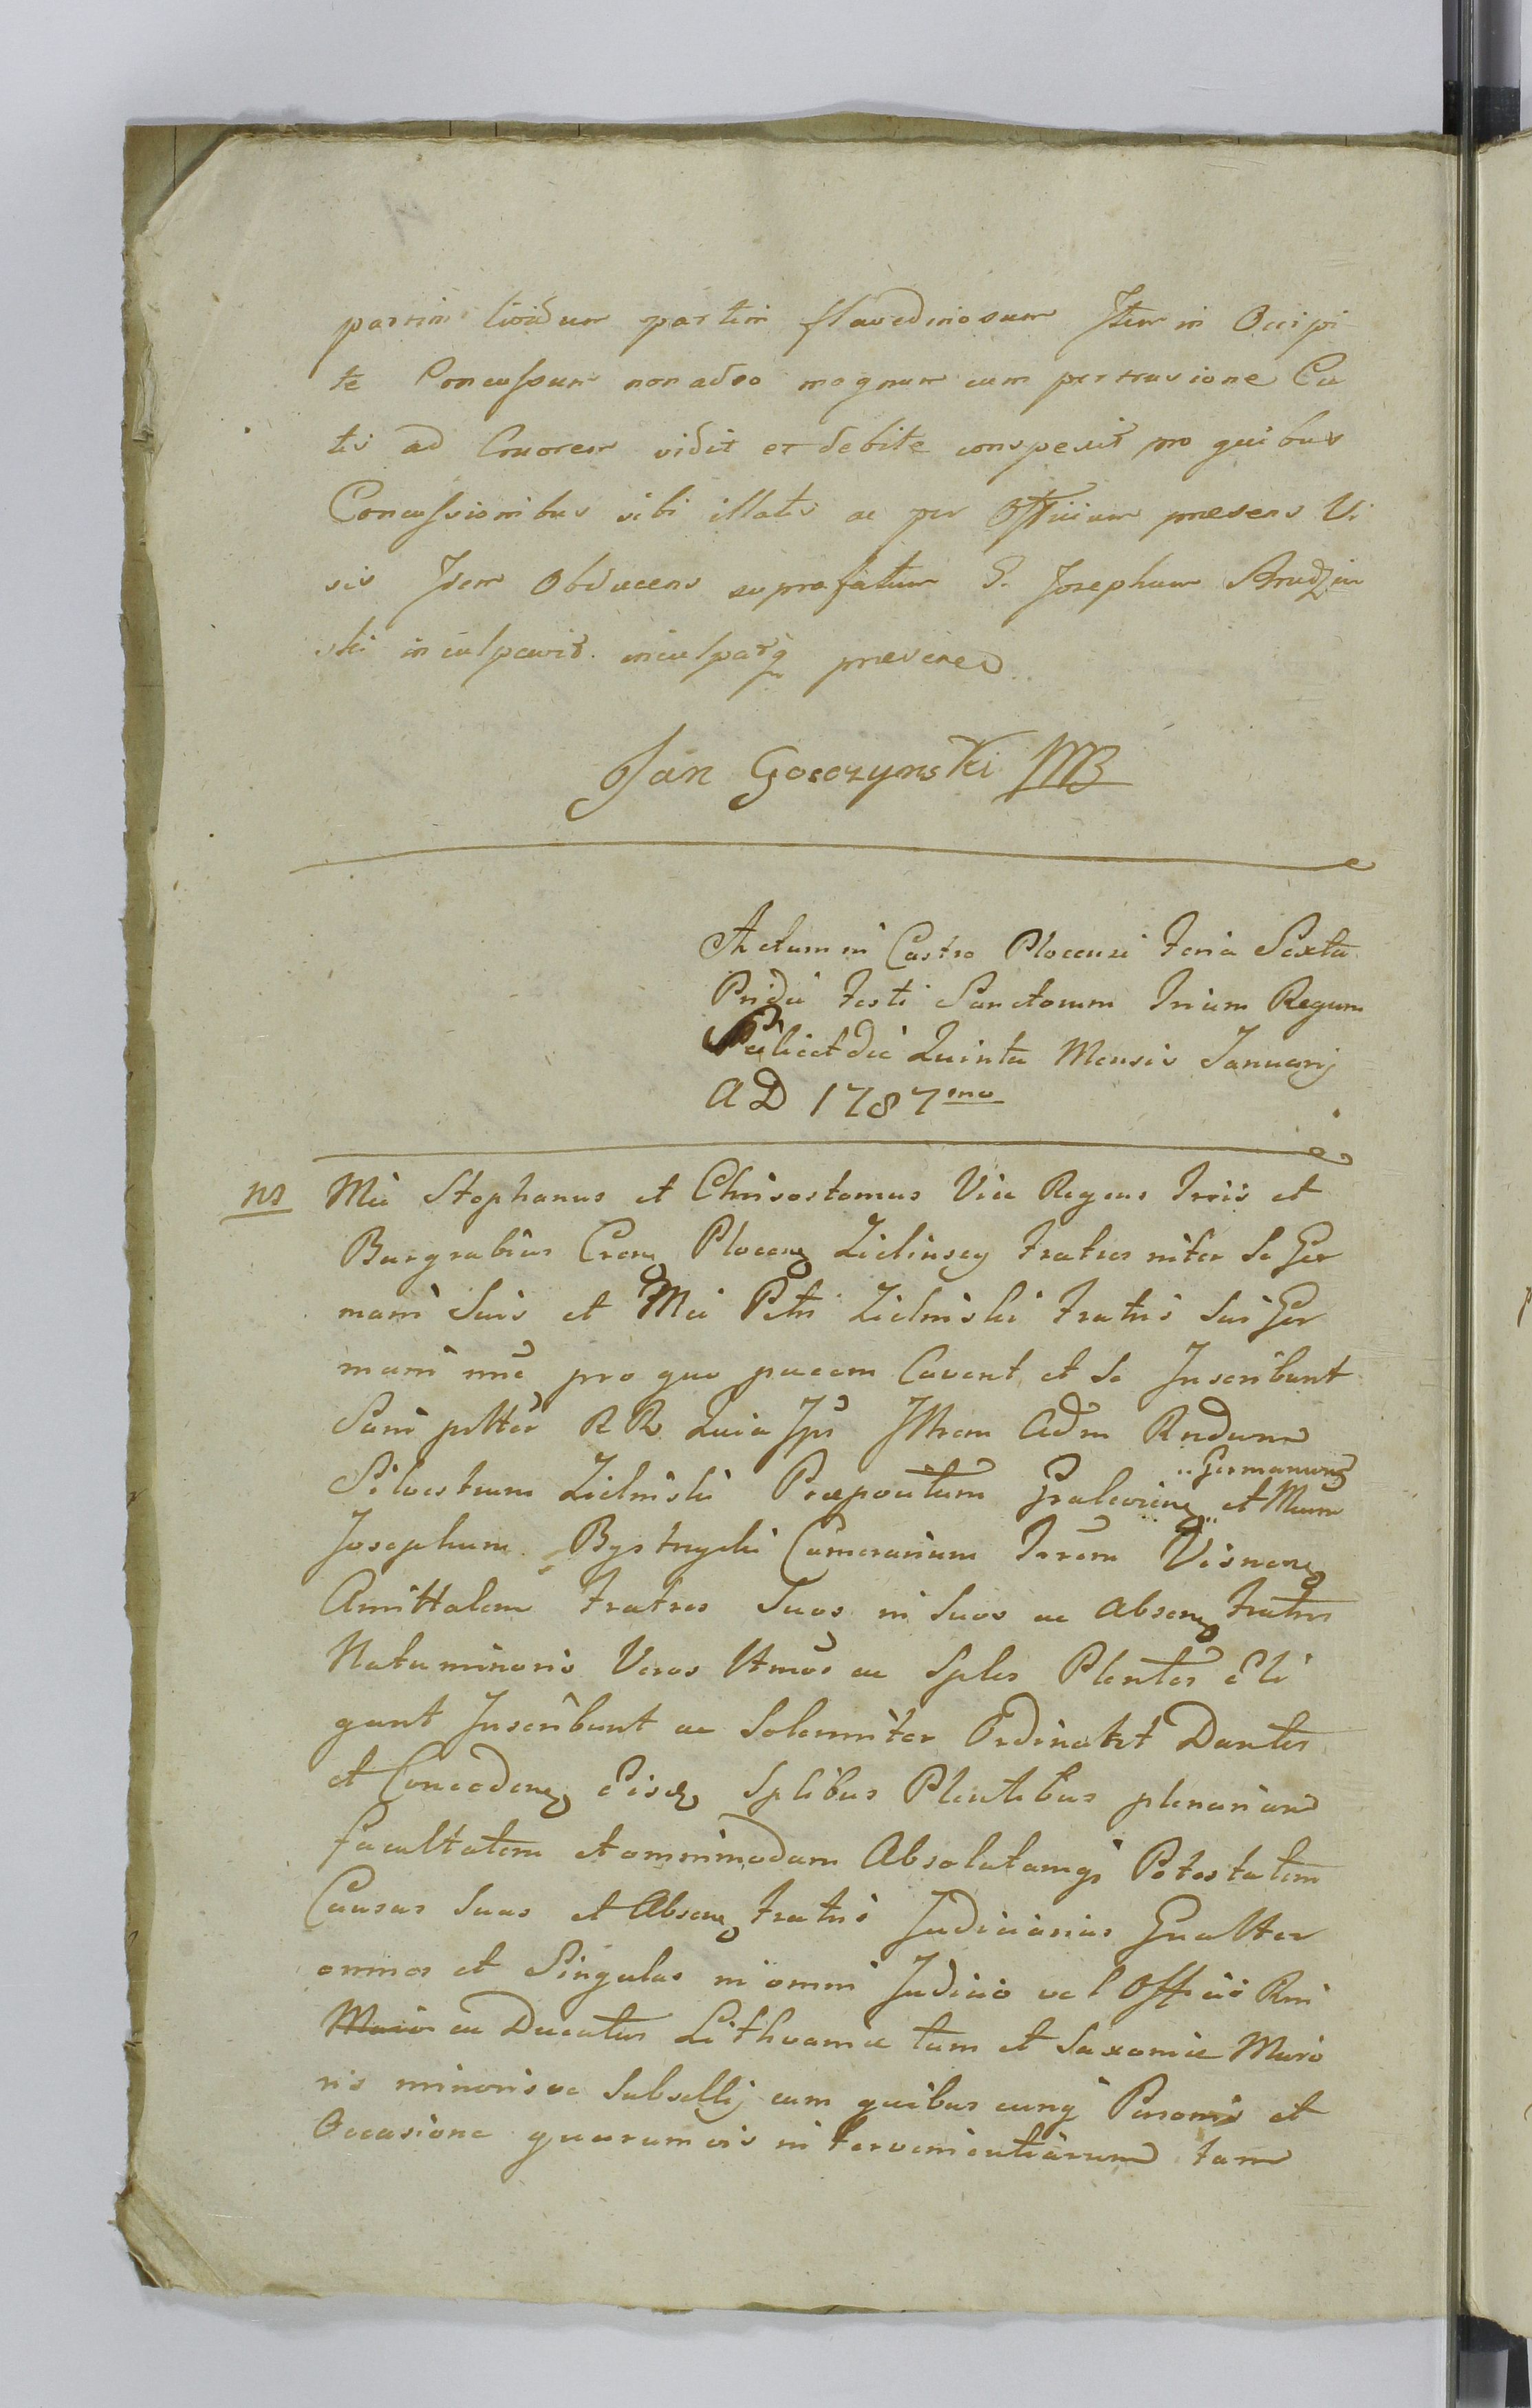 partim lividum partim flavedinosum Item in Occipi
te Concussum non adeo magnum cum pertrusione Cu
tis ad Cruorem vidit et debite conspexit pro quibus
Concussionibus sibi illatis ac per Officium præsens Vi
sis Idem Obducens suprafatum G. Josephum Brudzin
ski inculpavit inculpatq præsenter
Jan Gosczynski MB
Actum in Castro Plocensi Feria Sexta
Pridie Festi Sanctorum Trium Regum
Scilicet die Quinta Mensis Januarij
AD 1787mo
NB Mci Stephanus et Chrisostomus Vice Regens Trris et
Burgrabius Cren Plocen Zielinscy Fratres inter se Ger
mani Suis et Mci Petri Zielinski Fratris Sui Ger
mani nne pro quo pacem Cavent et se Inscribunt
Sani plttes RR Quia Ips Illrem Adm Rndum
Silvestrum Zielinski Præpositum Gralevien et Mcum
Germanum
Josephum Bystrycki Camerarium Trrem Visnen
Amittalem Fratres Suos in suos ac absen Fratris
Natu minoris Veros Ltmos ac Sples Plentes Eli
gunt Inscribunt ac Solemniter Ordinant Dantes
et Conceden Eisd Splibus Plentibus plenariam
facultatem et omnimodam Absolutamq Potestatem
Causas Suas et Absen Fratris Judiciarias Gnalter
omnes et Singulas in omni Judicio vel Officio Rni
Maio ac Ducatus Lithvaniæ tum et Saxoniæ Maio
ris minorisve Subsellij cum quibus cunq Personis et
Occasione quarumvis intervenientiarum tam